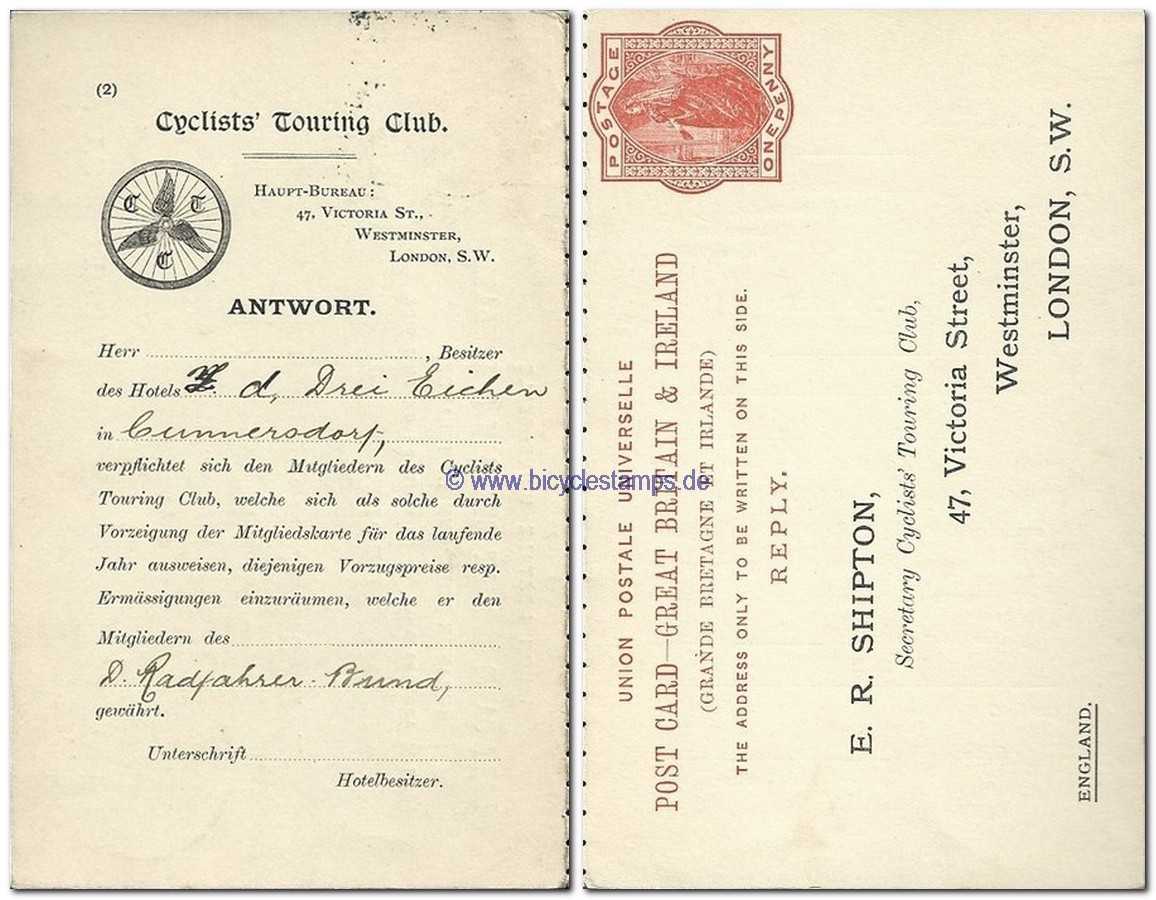 (2)
Cyclists' Touring Club.
C T C
HAUPT-BUREAU:
47, VICTORIA ST.,
WESTMINSTER,
LONDON, S.W.
ANTWORT.
Herr , Besitzer
des Hotels d, Drei Eichen
in Cunnersdorf,
verpflichtet sich den Mitgliedern des Cyclists
Touring Club, welche sich als solche durch
Vorzeigung der Mitgliedskarte für das laufende
Jahr ausweisen, diejenigen Vorzugspreise resp.
Ermässigungen einzuräumen, welche er den
Mitgliedern des
D. Radfahrer-Bund,
gewährt.
Unterschrift
Hotelbesitzer.
© www.bicyclestamps.de
POSTAGE
ONE PENNY
UNION POSTALE UNIVERSELLE
POST CARD—GREAT BRITAIN & IRELAND
(GRANDE BRETAGNE ET IRLANDE)
THE ADDRESS ONLY TO BE WRITTEN ON THIS SIDE.
REPLY.
E. R. SHIPTON,
Secretary Cyclists' Touring Club,
47, Victoria Street,
Westminster,
LONDON, S.W.
ENGLAND.